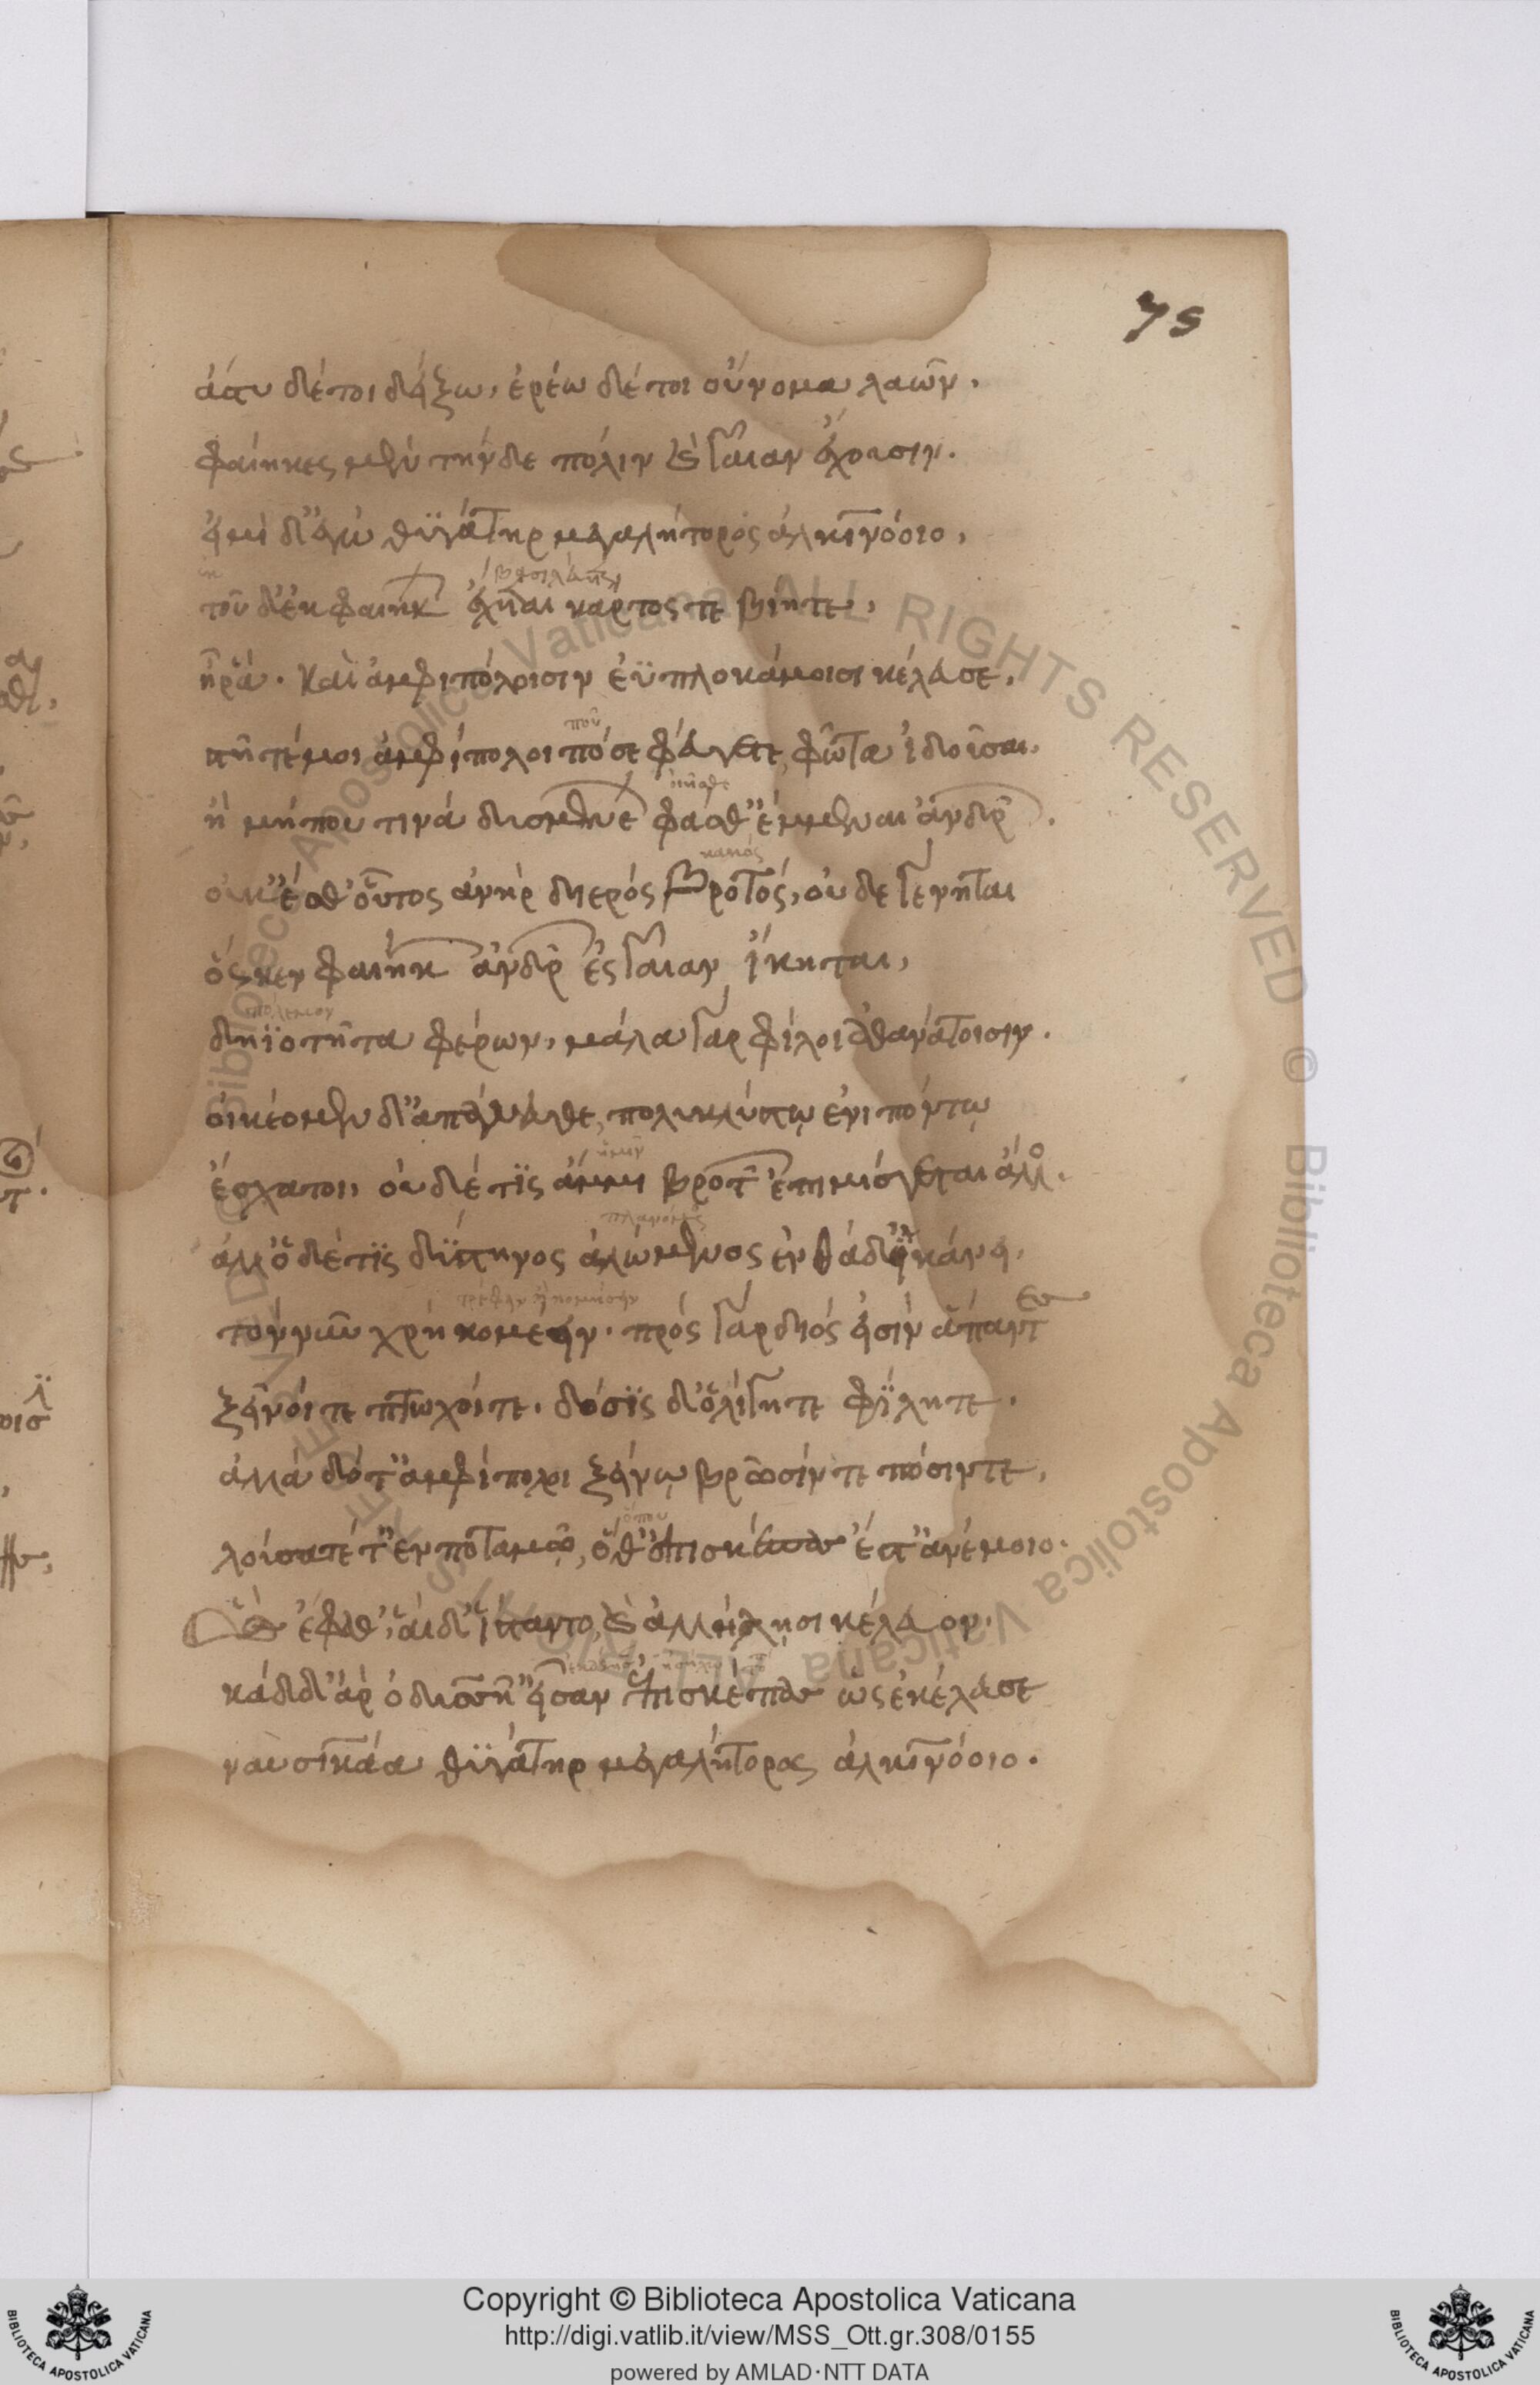 75
ἄστυ δέ τοι δείξω, ἐρέω δέ τοι οὔνομα λαῶν.
φαίηκες μὲν τήνδε πόλιν καὶ γαῖαν ἔχουσιν.
εἰμὶ δ' ἐγὼ θϋγάτηρ μεγαλήτορος ἀλκινόοιο,
τοῦ δ' ἐκ φαιήκων ἔχεται κάρτος τε βίητε,
ἦ ῥά. καὶ ἀμφιπόλοισιν ἐϋπλοκάμοισι κέλευσε,
στῆτέ μοι ἀμφίπολοι πόσε φεύγετε, φῶτα ἰδοῦσαι.
που
ἦ μή που τινὰ δυσμενέων φάσθ' ἔμμεναι ἀνδρῶν.
οὐκ ἔσθ' οὗτος ἀνὴρ διερὸς βροτός, οὐδὲ γένηται
ὅς κεν φαιήκων ἀνδρῶν ἐς γαῖαν ἵκηται,
πόλεμον
δηϊοτῆτα φέρων, μάλα γὰρ φίλοι ἀθανάτοισιν.
οἰκέομεν δ' ἀπάνευθε, πολυκλύστῳ ἐνὶ πόντῳ
ἔσχατοι, οὐδέ τϊς ἄμμι βροτῶν ἐπιμίσγεται ἄλλος.
ἀλλ' ὅδε τϊς δύστηνος ἀλώμενος ἐνθάδ' ἱκάνει,
τὸν νῦν χρὴ κομέειν. πρὸς γὰρ διός εἰσιν ἅπαντες
ξεῖνοί τε πτωχοί τε. δόσϊς δ' ὀλίγη τε φΐλη τε.
ἀλλὰ δότ' ἀμφίπολοι ξείνῳ βρῶσίν τε πόσιν τε,
ὅπου
λούσατέ τ' ἐν ποταμῷ, ὅθ' ἐπὶ σκέπας ἔστ' ἀνέμοιο.
ὣς ἔφαθ', αἱ δ' ἔσταντο, καὶ ἀλλήλῃσι κέλευον.
κὰδ δ' ἄρ ὀδυσσῆ' εἷσαν ἐπὶ σκέπας ὡς ἐκέλευσε
ναυσικάα θϋγάτηρ μεγαλήτορος ἀλκινόοιο.
Copyright © Biblioteca Apostolica Vaticana
http://digi.vatlib.it/view/MSS_Ott.gr.308/0155
powered by AMLAD·NTT DATA
BIBLIOTECA APOSTOLICA VATICANA
BIBLIOTECA APOSTOLICA VATICANA